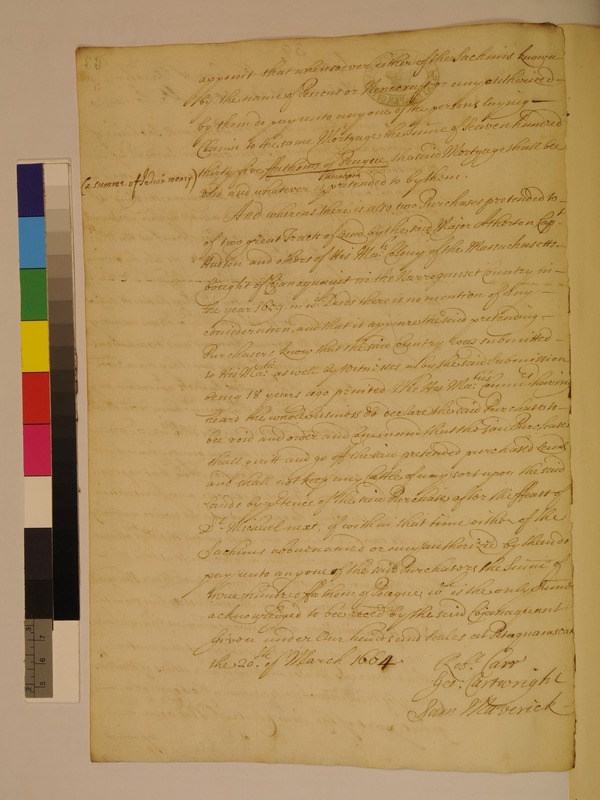 appoint that whensoever either of the Sachims known
by the name of Pencus or any authorised
by them do pay unto any one of the persons laying
Claime to the same Mortgage the Summe of Seaven hundred
(a summe of Indian mony) thirty five ffathome of Peague the said Mortgage shall bee
void and whatever is pretended to by them.
And whereas there is also two Purchases pretended to
of two great Tracts of Land by the said Major Atherton Capt.
Hudson and others of His Mats. Colony of the Massachusetts
bought of Cojanaquant in the Narroganset Country in
the year 1659. in wch. Deeds there is no mention of any
consideration, and that it appeares the said pretending
Purchasers know that the said Country was submitted
to His Matie. as well by Witnesses as by the said Submission
being 18 years ago printed The His Maties. having
heard the whole business do declare the said Purchase to
bee void and order and command that the said Purchasers
shall quitt and go off the said pretended purchased Lands
and shall not keep any Cattle of any sort upon the said
Lands by ptence of the said Purchase after the ffeast of
St. Michael next, if within that time either of the
Sachims abovenamed or any authorized by them do
pay unto any one of the said Purchasers the Summe of
three hundred ffathome of Peague, wch. is the only Summe
acknowledged to bee reced by the said Cojanaquant
Given under Our hands and Seales at Petaquamscut
the 20th. of March 1664.
Robt. Carr
Geo: Cartwright
Sam Maverick